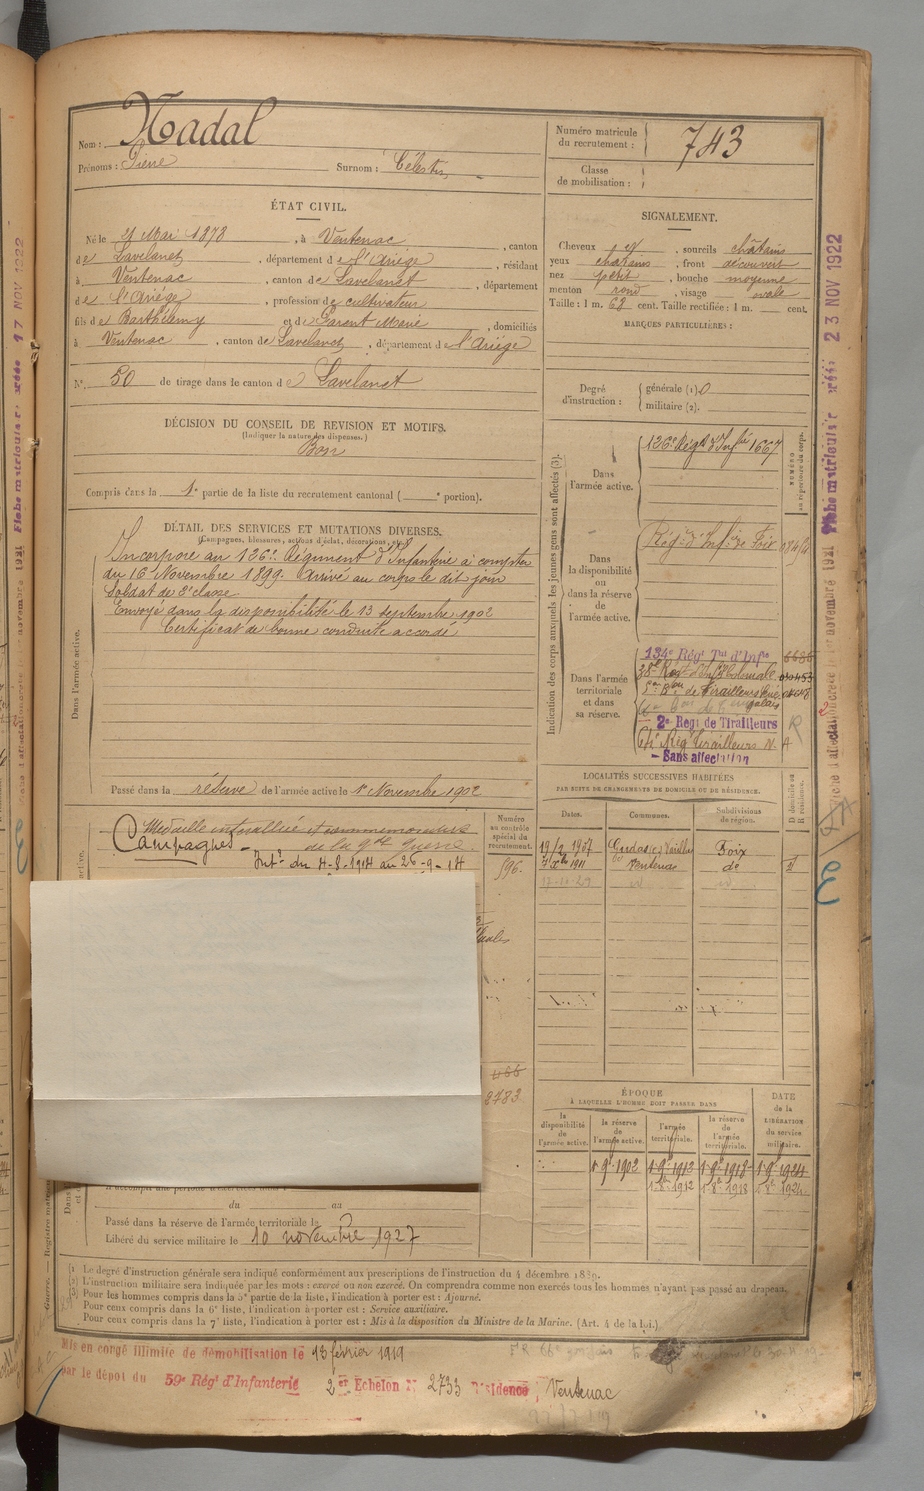 Nom : Nadal
Prénoms : Pierre Surnom : Célestin
Numéro matricule du recrutement : 743
Classe de mobilisation :
ÉTAT CIVIL.
Né le 21 Mai 1878, à Ventenac, canton
de Lavelanet, département de l'Ariège, résidant
à Ventenac, canton de Lavelanet, département
de l'Ariège, profession de cultivateur
fils de Barthélemy et de Parent Marie, domiciliés
à Ventenac, canton de Lavelanet, département de l'Ariège
N° 50 de tirage dans le canton de Lavelanet
SIGNALEMENT.
Cheveux et, sourcils châtains
yeux châtains, front découvert
nez petit, bouche moyenne
menton rond, visage ovale
Taille : 1 m. 62 cent. Taille rectifiée : 1 m. cent.
MARQUES PARTICULIÈRES :
Degré d'instruction : générale (1) militaire (2).
DÉCISION DU CONSEIL DE REVISION ET MOTIFS.
(Indiquer la nature des dispenses.)
Bon
Compris dans la 1e partie de la liste du recrutement cantonal ( portion).
DÉTAIL DES SERVICES ET MUTATIONS DIVERSES.
(Campagnes, blessures, actions d'éclat, décorations, etc.)
Dans l'armée active.
Incorporé au 126e Régiment d'Infanterie à compter
du 16 Novembre 1899. Arrivé au corps le dit jour
Soldat de 2e classe
Envoyé dans la disponibilité le 13 septembre 1902
Certificat de bonne conduite accordé
Passé dans la réserve de l'armée active le 1er Novembre 1902
Indication des corps auxquels les jeunes gens sont affectés (3).
NUMÉRO au répertoire du corps.
Dans l'armée active.
126e Régt d'Infie 1667
Dans la disponibilité ou dans la réserve de l'armée active.
Régt d'Infie de Foix
Dans l'armée territoriale et dans sa réserve.
134e Régt Tal d'Infie
38e Régt d'Infie Coloniale
2e Régt de Tirailleurs R
Régt Tirailleurs N. A
- Sans affectation
LOCALITÉS SUCCESSIVES HABITÉES
PAR SUITE DE CHANGEMENTS DE DOMICILE OU DE RÉSIDENCE.
Dates. Communes. Subdivisions de région. D domicile ou R résidence.
19/2 1907 Foix
1911 Ventenac do
Médaille interalliée et commémorative
de la gde Guerre
Campagnes -
Intr du 4-8-1914 au 26-9-14
Numéro au contrôle spécial du recrutement.
596
2783
ÉPOQUE
À LAQUELLE L'HOMME DOIT PASSER DANS
la disponibilité de l'armée active. la réserve de l'armée active. l'armée territoriale. la réserve de l'armée territoriale.
DATE de la LIBÉRATION du service militaire.
1er 9bre 1902 1er 9bre 1913 1er 9bre 1918 1er 9bre 1924
1er 8bre 1912 1er 8bre 1918 1er 8bre 1924
du au
Passé dans la réserve de l'armée territoriale le
Libéré du service militaire le 10 novembre 1927
(1) Le degré d'instruction générale sera indiqué conformément aux prescriptions de l'instruction du 4 décembre 1889.
(2) L'instruction militaire sera indiquée par les mots : exercé ou non exercé. On comprendra comme non exercés tous les hommes n'ayant pas passé au drapeau.
(3) Pour les hommes compris dans la 5e partie de la liste, l'indication à porter est : Ajourné.
Pour ceux compris dans la 6e liste, l'indication à porter est : Service auxiliaire.
Pour ceux compris dans la 7e liste, l'indication à porter est : Mis à la disposition du Ministre de la Marine. (Art. 4 de la loi.)
Mis en congé illimité de démobilisation le 13 février 1919
par le dépôt du 59e Régt d'Infanterie 2er Echelon N° 2733 Résidence, Ventenac
17 NOV 1922
23 NOV 1922